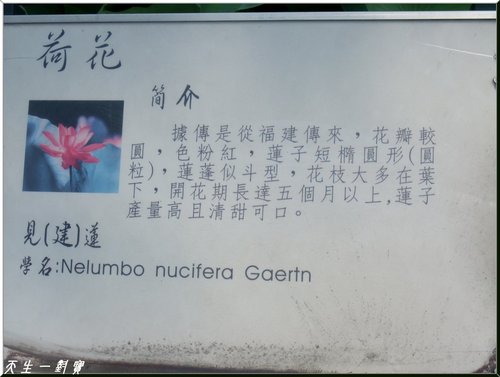 荷花
簡介
據傳是從福建傳來，花瓣較
圓，色粉紅，蓮子短橢圓形(圓
粒)，蓮蓬似斗型，花枝大多在葉
下，開花期長達五個月以上,蓮子
產量高且清甜可口。
見(建)蓮
學名:Nelumbo nucifera Gaertn
天生一對寶